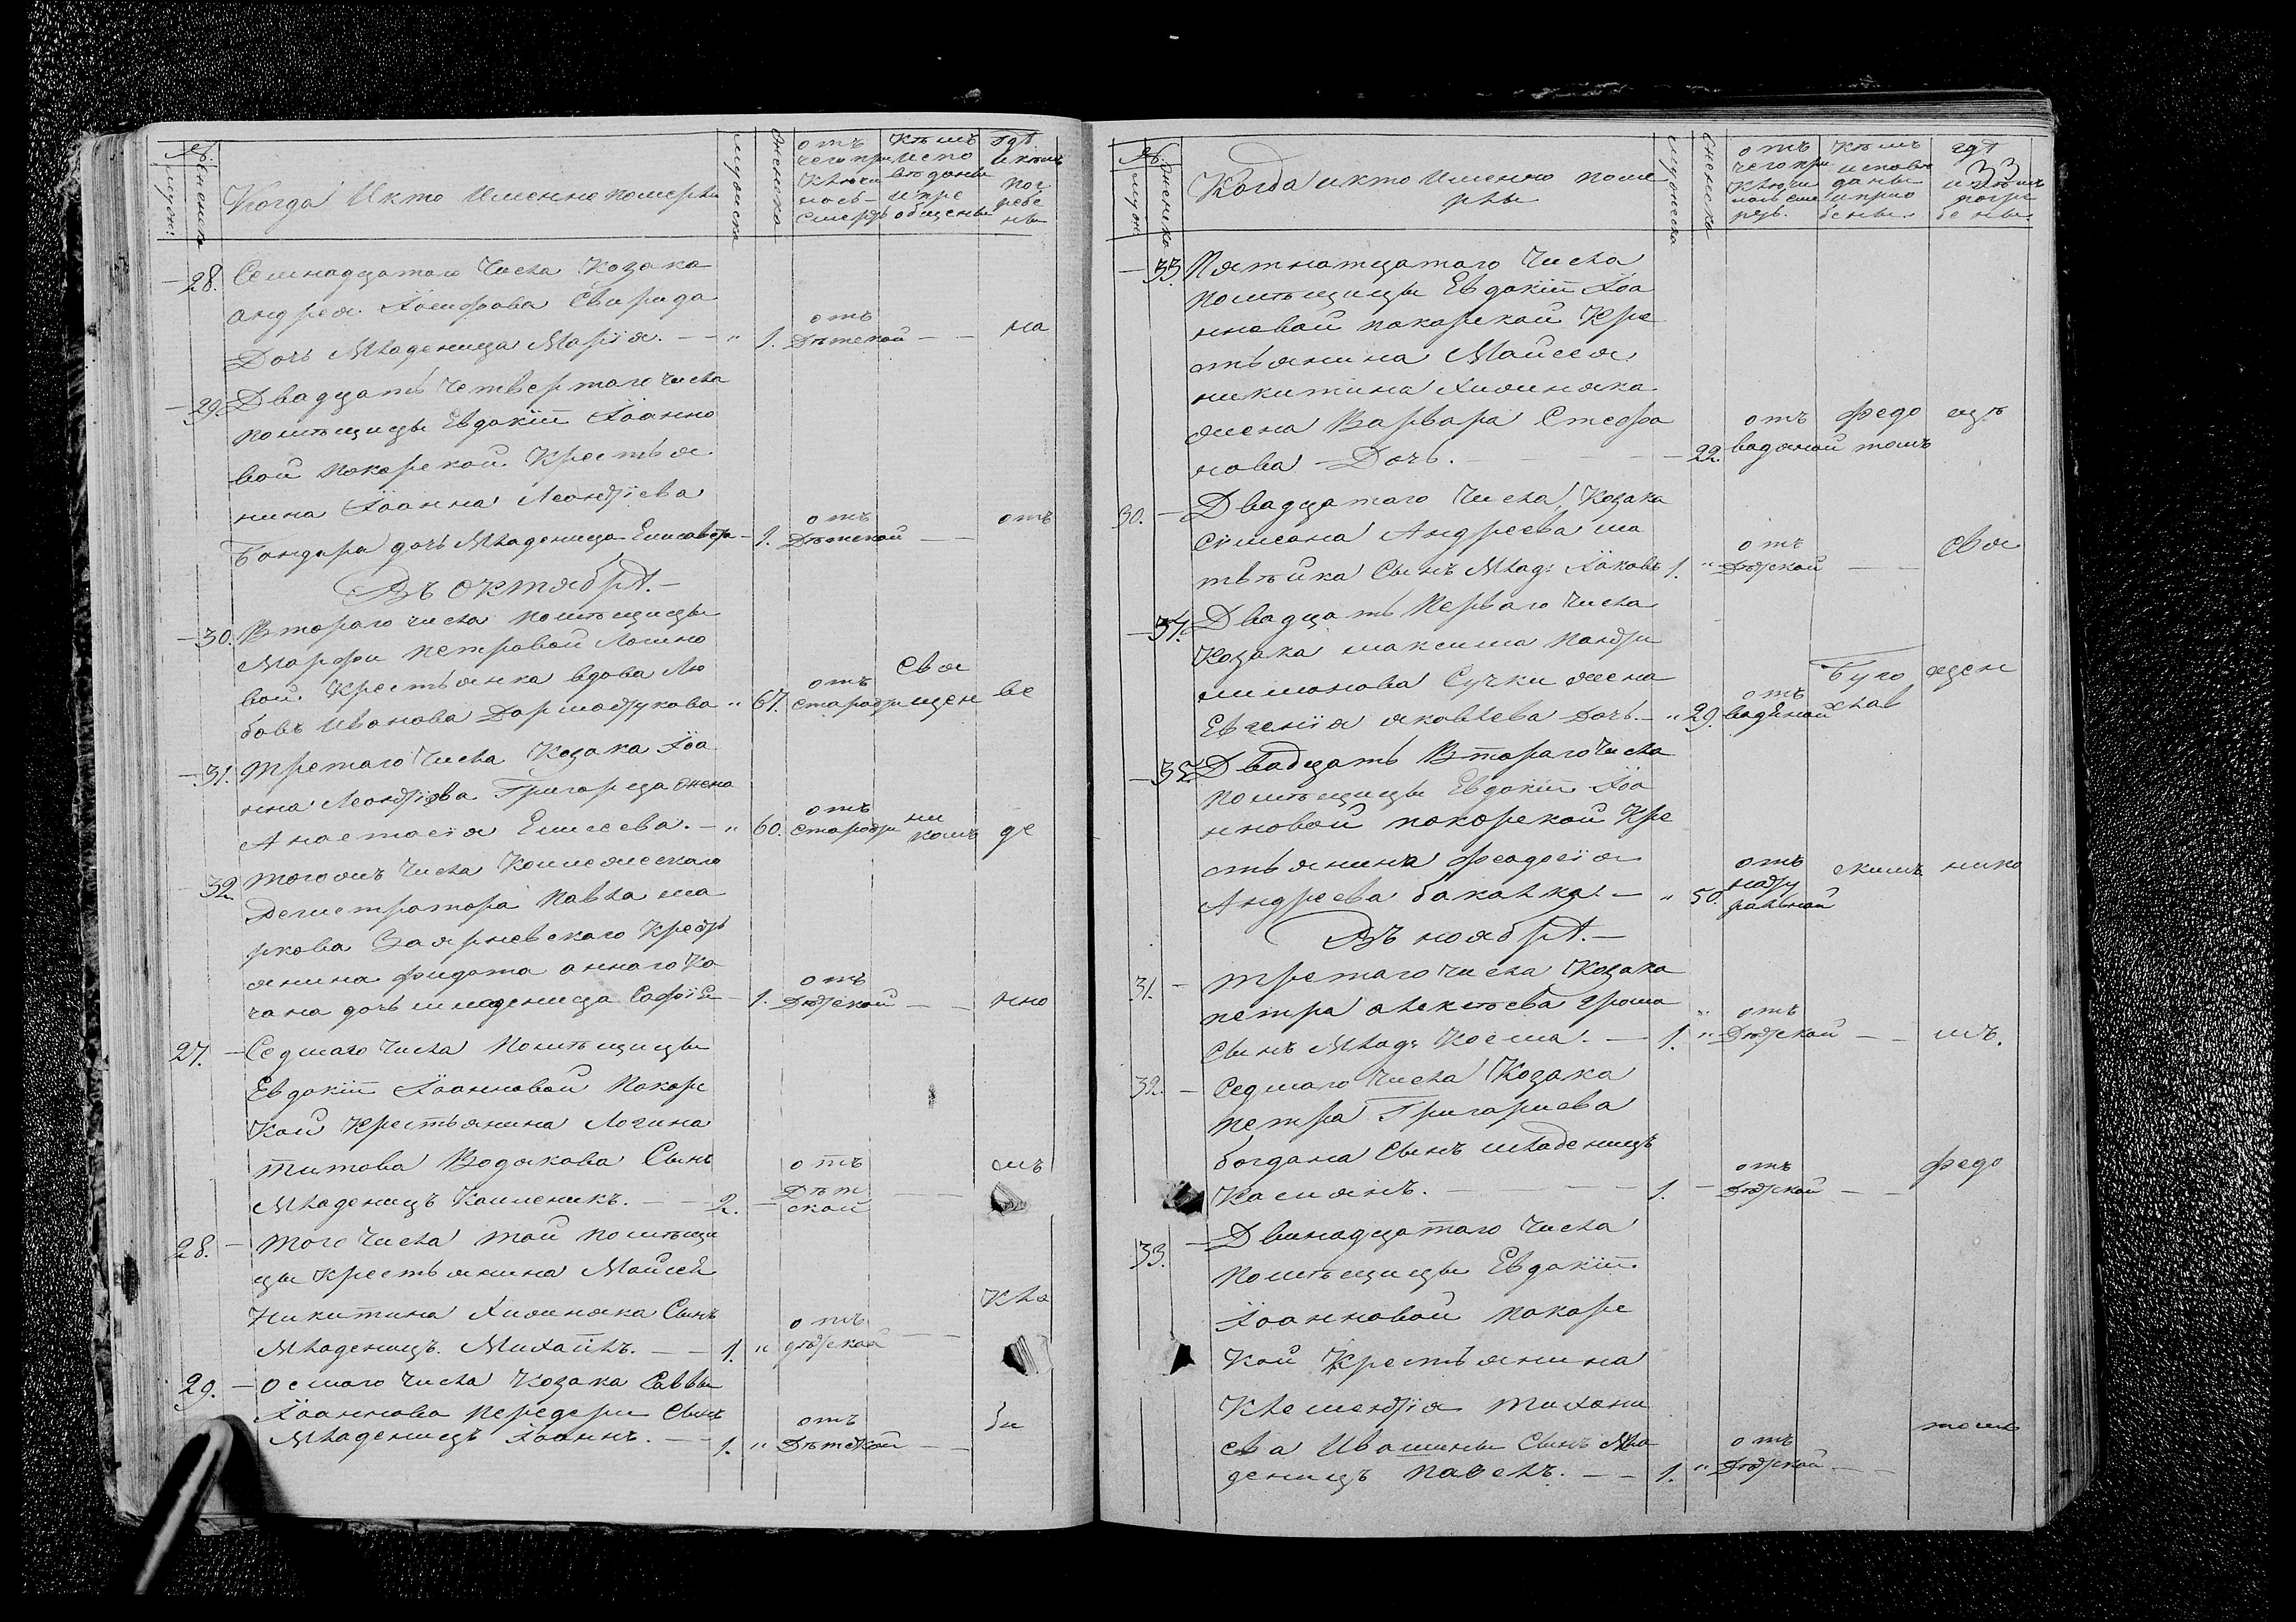 №.
мужи:
женска
Когда И кто Именно померъ
мужеска
женска
отъ чего при ключи лась смерть
Кѣмъ испо вѣданы и прі общены
гдѣ и кѣмъ пог ребе ны
28. Семнадцатаго Числа Козака
андрея Свирида
Дочь Младеница Марія. — " 1. отъ Дѣтской — — на
29. Двадцать Четвертаго числа
помѣщицы Евдокіи Іоанно
вой покорской Крестья
нина Іоанна Леонтіева
Бондаря дочь Младеница Елисавета — 1. отъ Дѣтской — — отъ
Въ октябрѣ. —
30. Втораго числа помѣщицы
Марфы петровой Логино
вой Крестьянка вдова Лю
бовь Иванова " 67. отъ старости Свя щен ве
31. третаго Числа Козака Іоа
нна Леонтіева Григор жена
Анастасія Елисеева. — " 60. отъ старости ни комъ де
32. тогожъ Числа Коллежскаго
Регистратора Павла ма
ркова Крестъ
янина
дочь младеница Софія — 1. отъ Дѣтской — — нно
27. Седмаго Числа Помѣщицы
Евдокіи Іоанновой Покорс
Кой Крестьянина Логина
Титова Водакова Сынъ
Младенецъ — — 2. — отъ Дѣт ской — — мъ
28. того Числа той помѣщи
цы Крестьянина Моисей
Никитина Хижняка Сынъ
Младенецъ Михаилъ. — — 1. " отъ дѣтской — — кла
29. осмаго Числа Козака Саввы
Іоаннова передери Сынъ
Младенецъ Іоаннъ. — — 1. " отъ Дѣтской — —
№.
мужи
женско
Когда и кто Именно поме
рлы
мужеска
женска
отъ чего при Ключи лась сме рть.
Кѣмъ исповѣ даны и прио бены
гдѣ и кѣмъ погре бены
33
33. Пятнатцатаго Числа
помѣщицы Евдокіи Іоа
нновой покорской Кре
стьянина Моисея
никитина Хижняка
жена Варвара Стефа
нова Дочь. — — — 22. отъ водяной федо томъ щѣ
30. Двадцатаго Числа Козака
Симеона Андреева ма
твѣйка Сынъ Млад: Іаковъ 1. " отъ Дѣтской — — свя
31. Двадцать Перваго Числа
Козака максима
Сучки жена
Евгенія яковлева дочь. — " 29. отъ водяной Буго слав щен
32. Двадцать Втораго Числа
Помѣщицы Евдокіи Іоа
нновой покорской Кре
стьянина феодосія
Андреева бакалка. — " 50. отъ нату ральной скимъ нико
Въ ноябрѣ. —
31. — третаго числа Козака
петра алексѣева
Сынъ Млад: Косма. — 1. " отъ Дѣтской — — мъ.
32. — Седмаго Числа Козака
Петра Григориева
богдана Сынъ младеницъ
Касиянъ. — — — 1. — отъ Дѣтской — — федо
33. — Двинадцатаго Числа
Помѣщицы Евдокіи
Іоанновой покорс
Кой Крестьянина
Клементія Тихони
ева Ивашины Сынъ Мла
деницъ Павелъ. — — 1. " отъ Дѣтской — — томъ